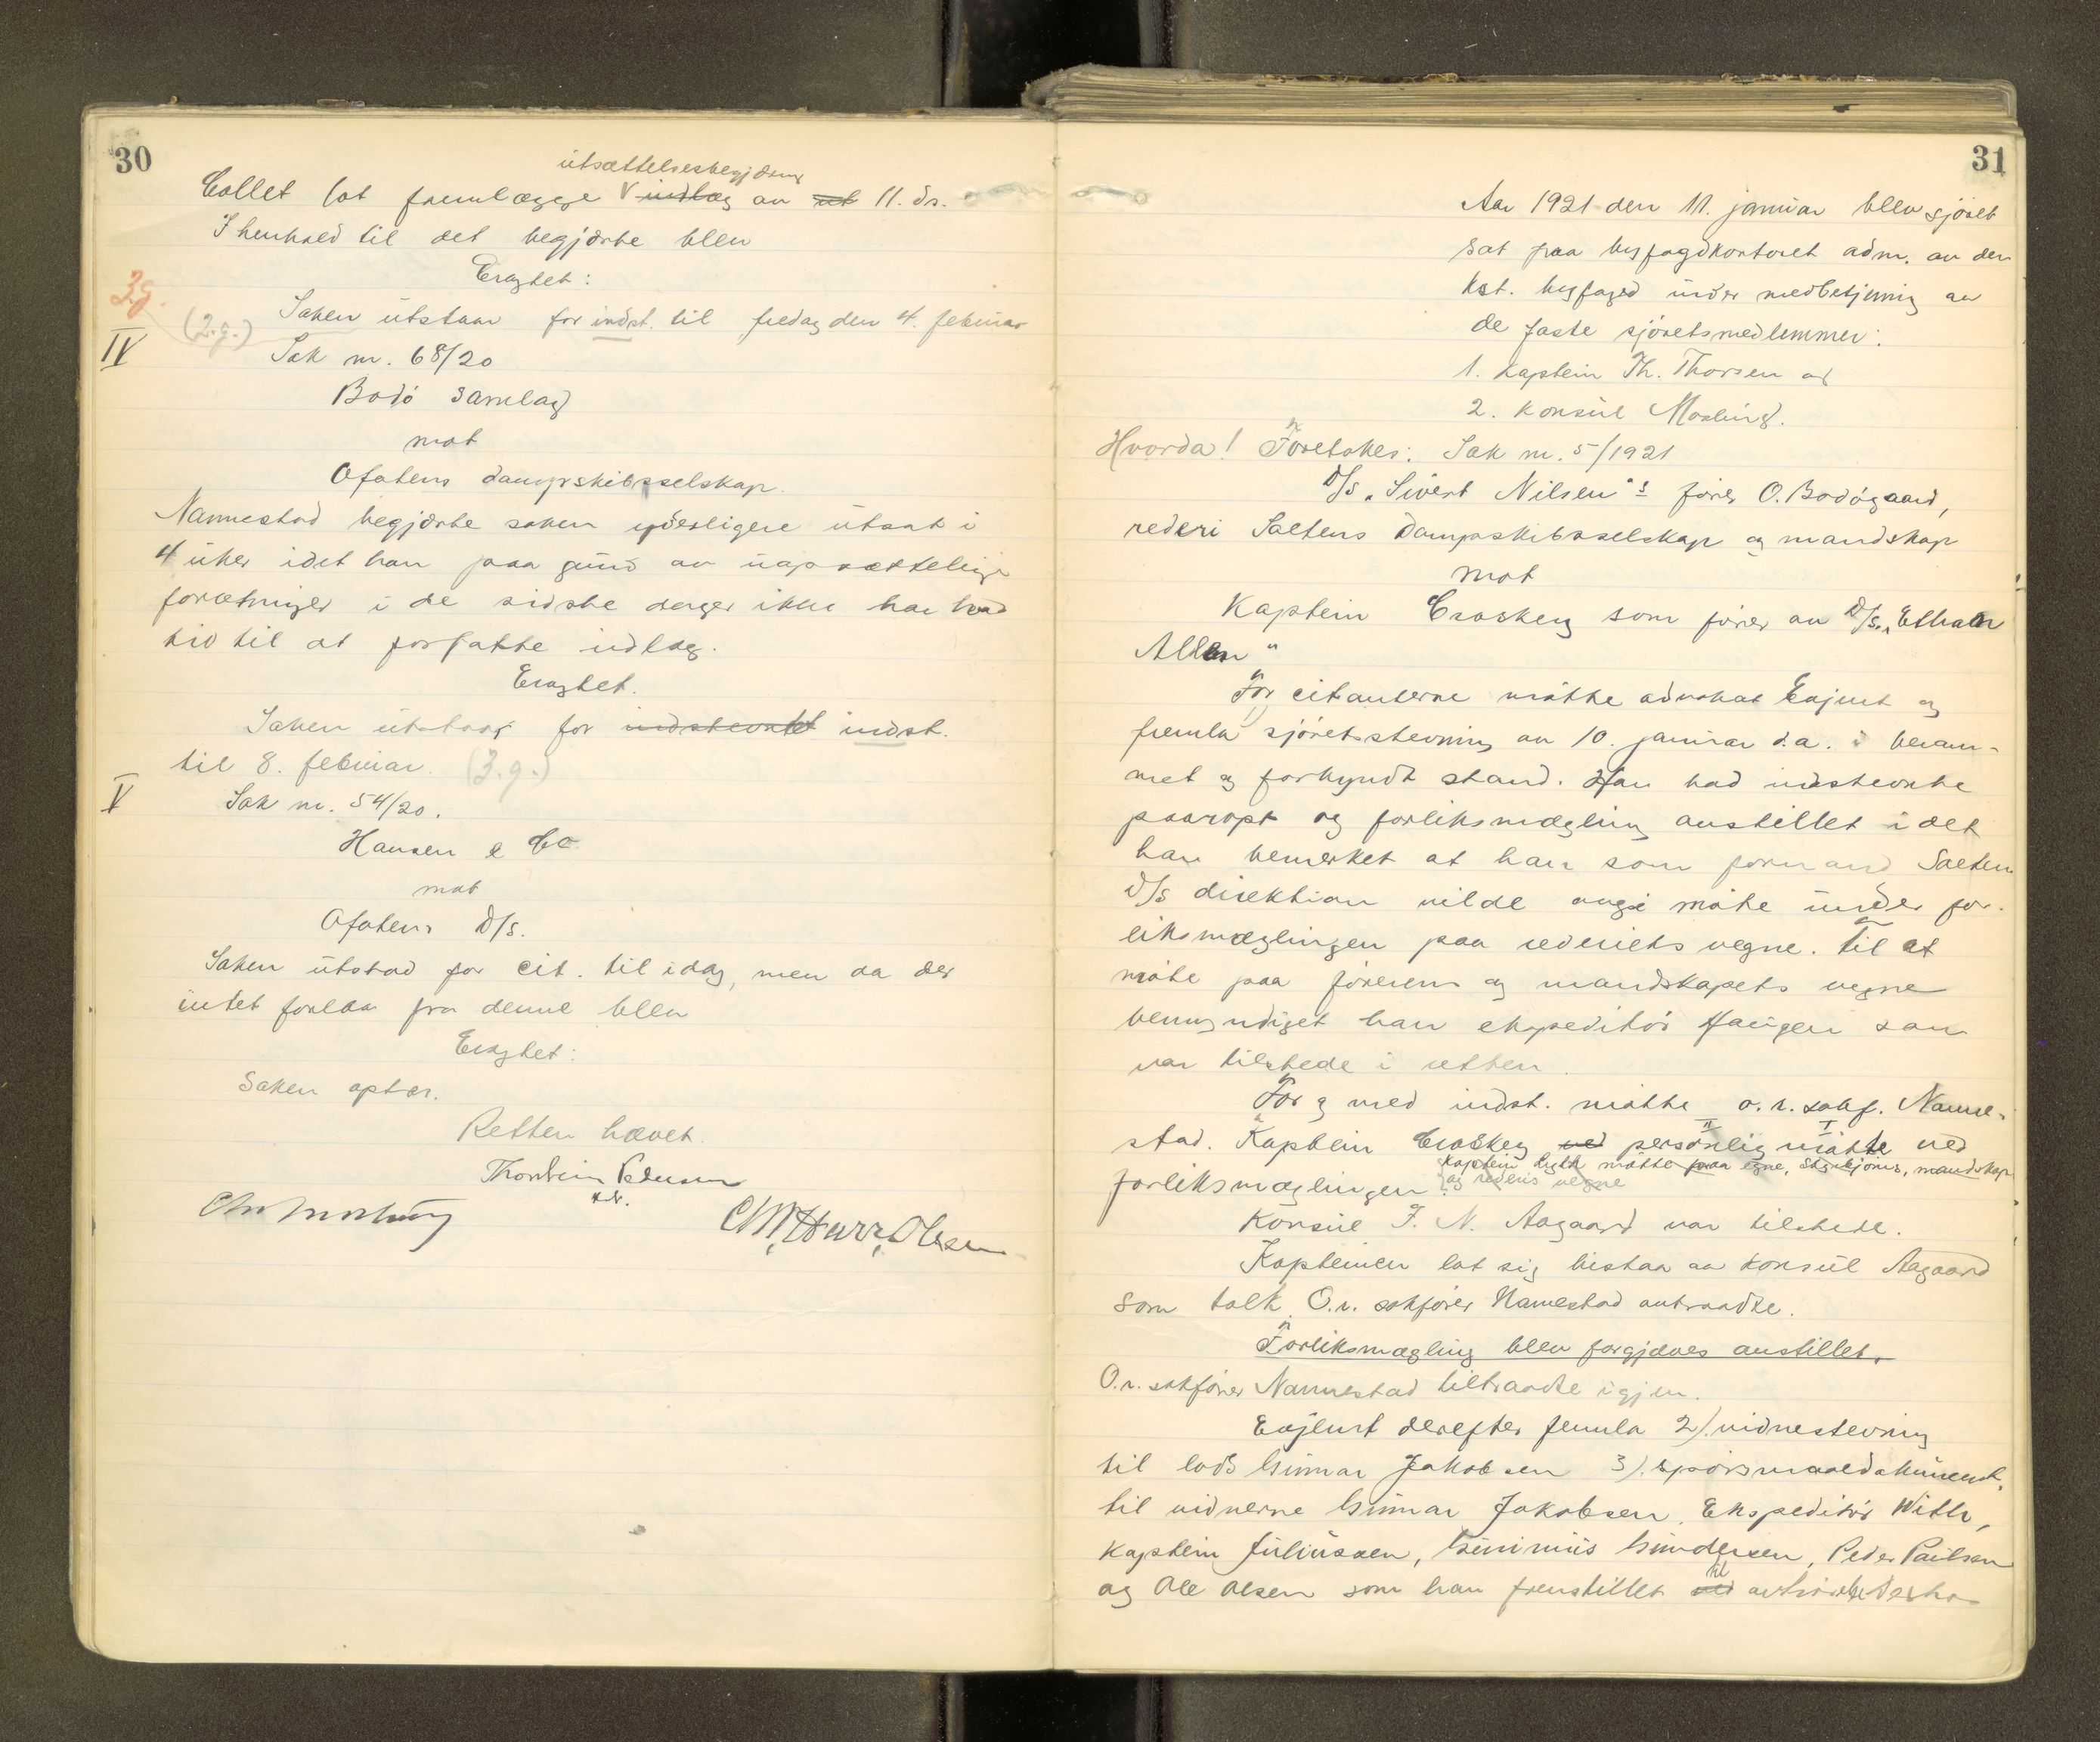 30
utsættelsesbegjæring
Collet lot fremlægge indlæg av ut 11. ds.
I henhold til det begjærte blev
Eragtet:
3g.
(2.g.)
Saken utstaar for indst. til fredag den 4. februar
IV
Sak nr. 68/20
Bodö Samlag
mot
Ofotens dampskibsselskap.
Nannestad begjærte saken yderligere utsat i
4 uker idet han paa grund av uopsættelige
forretninger i de sidste dager ikke har hat
tid til at forfatte indlæg.
Eragtet.
Saken utstaar for indstevnte indst.
til 8. februar. (3.g.)
V
Sak nr. 54/20.
Hansen & Co
mot
Ofotens D/s.
Saken utstod for cit. til idag, men da der
intet forelaa fra denne blev
Eragtet:
Saken optas.
Retten hævet.
Thorstein Pedersen
kst.
Chr Morling
31
Aar 1921 den 11. januar blev sjöret
sat paa byfogdkontoret adm. av den
kst. byfoged under medbetjening av
de faste sjöretsmedlemmer:
1. Kaptein Th. Thorsen og
2. Konsul Morling.
Hvorda! Foretokes: Sak nr. 5/1921
D/S "Sivert Nilsen"s förer O. Bodögaard,
rederi Saltens Dampskibsselskap og mandskap
mot
Kaptein Croskey som förer av D/S. "Ethan
Allen"
For citanterne mötte advokat Enjust og
fremla sjöretsstevning av 10. januar d.a. i beram-
met og forkyndt stand. Han bad indstevnte
paaropt og forliksmægling anstillet idet
han bemerket at han som formand Saltens
D/S direktion vilde avgi möte under for-
liksmæglingen paa rederiets vegne. Til at
möte paa förerens og mandskapets vegne
bemyndiget han ekspeditör Haugen som
var tilstede i retten.
For og med indst. mötte o.r. sakf. Nanne-
stad. Kaptein Croskey ved personlig mötte ved
Kaptein mötte paa egne, mandskap
og rederis vegne
forliksmæglingen.
Konsul F. N. Aagaard var tilstede.
Kapteinen lot sig bistaa av konsul Aagaard
som tolk. O.r. sakförer Nannestad antraadte.
Forliksmægling blev forgjæves anstillet.
O.r. sakförer Nannestad tiltraadte igjen.
Enjust derefter fremla 2). vidnestevning
til lods Gunnar Jakobsen 3). spörsmaalsdokument
til vidnerne Gunnar Jakobsen, Ekspeditör With,
Kaptein Juliussen, Gunerius Gundersen, Peder Paulsen
og Ole Olsen som han fremstillet til